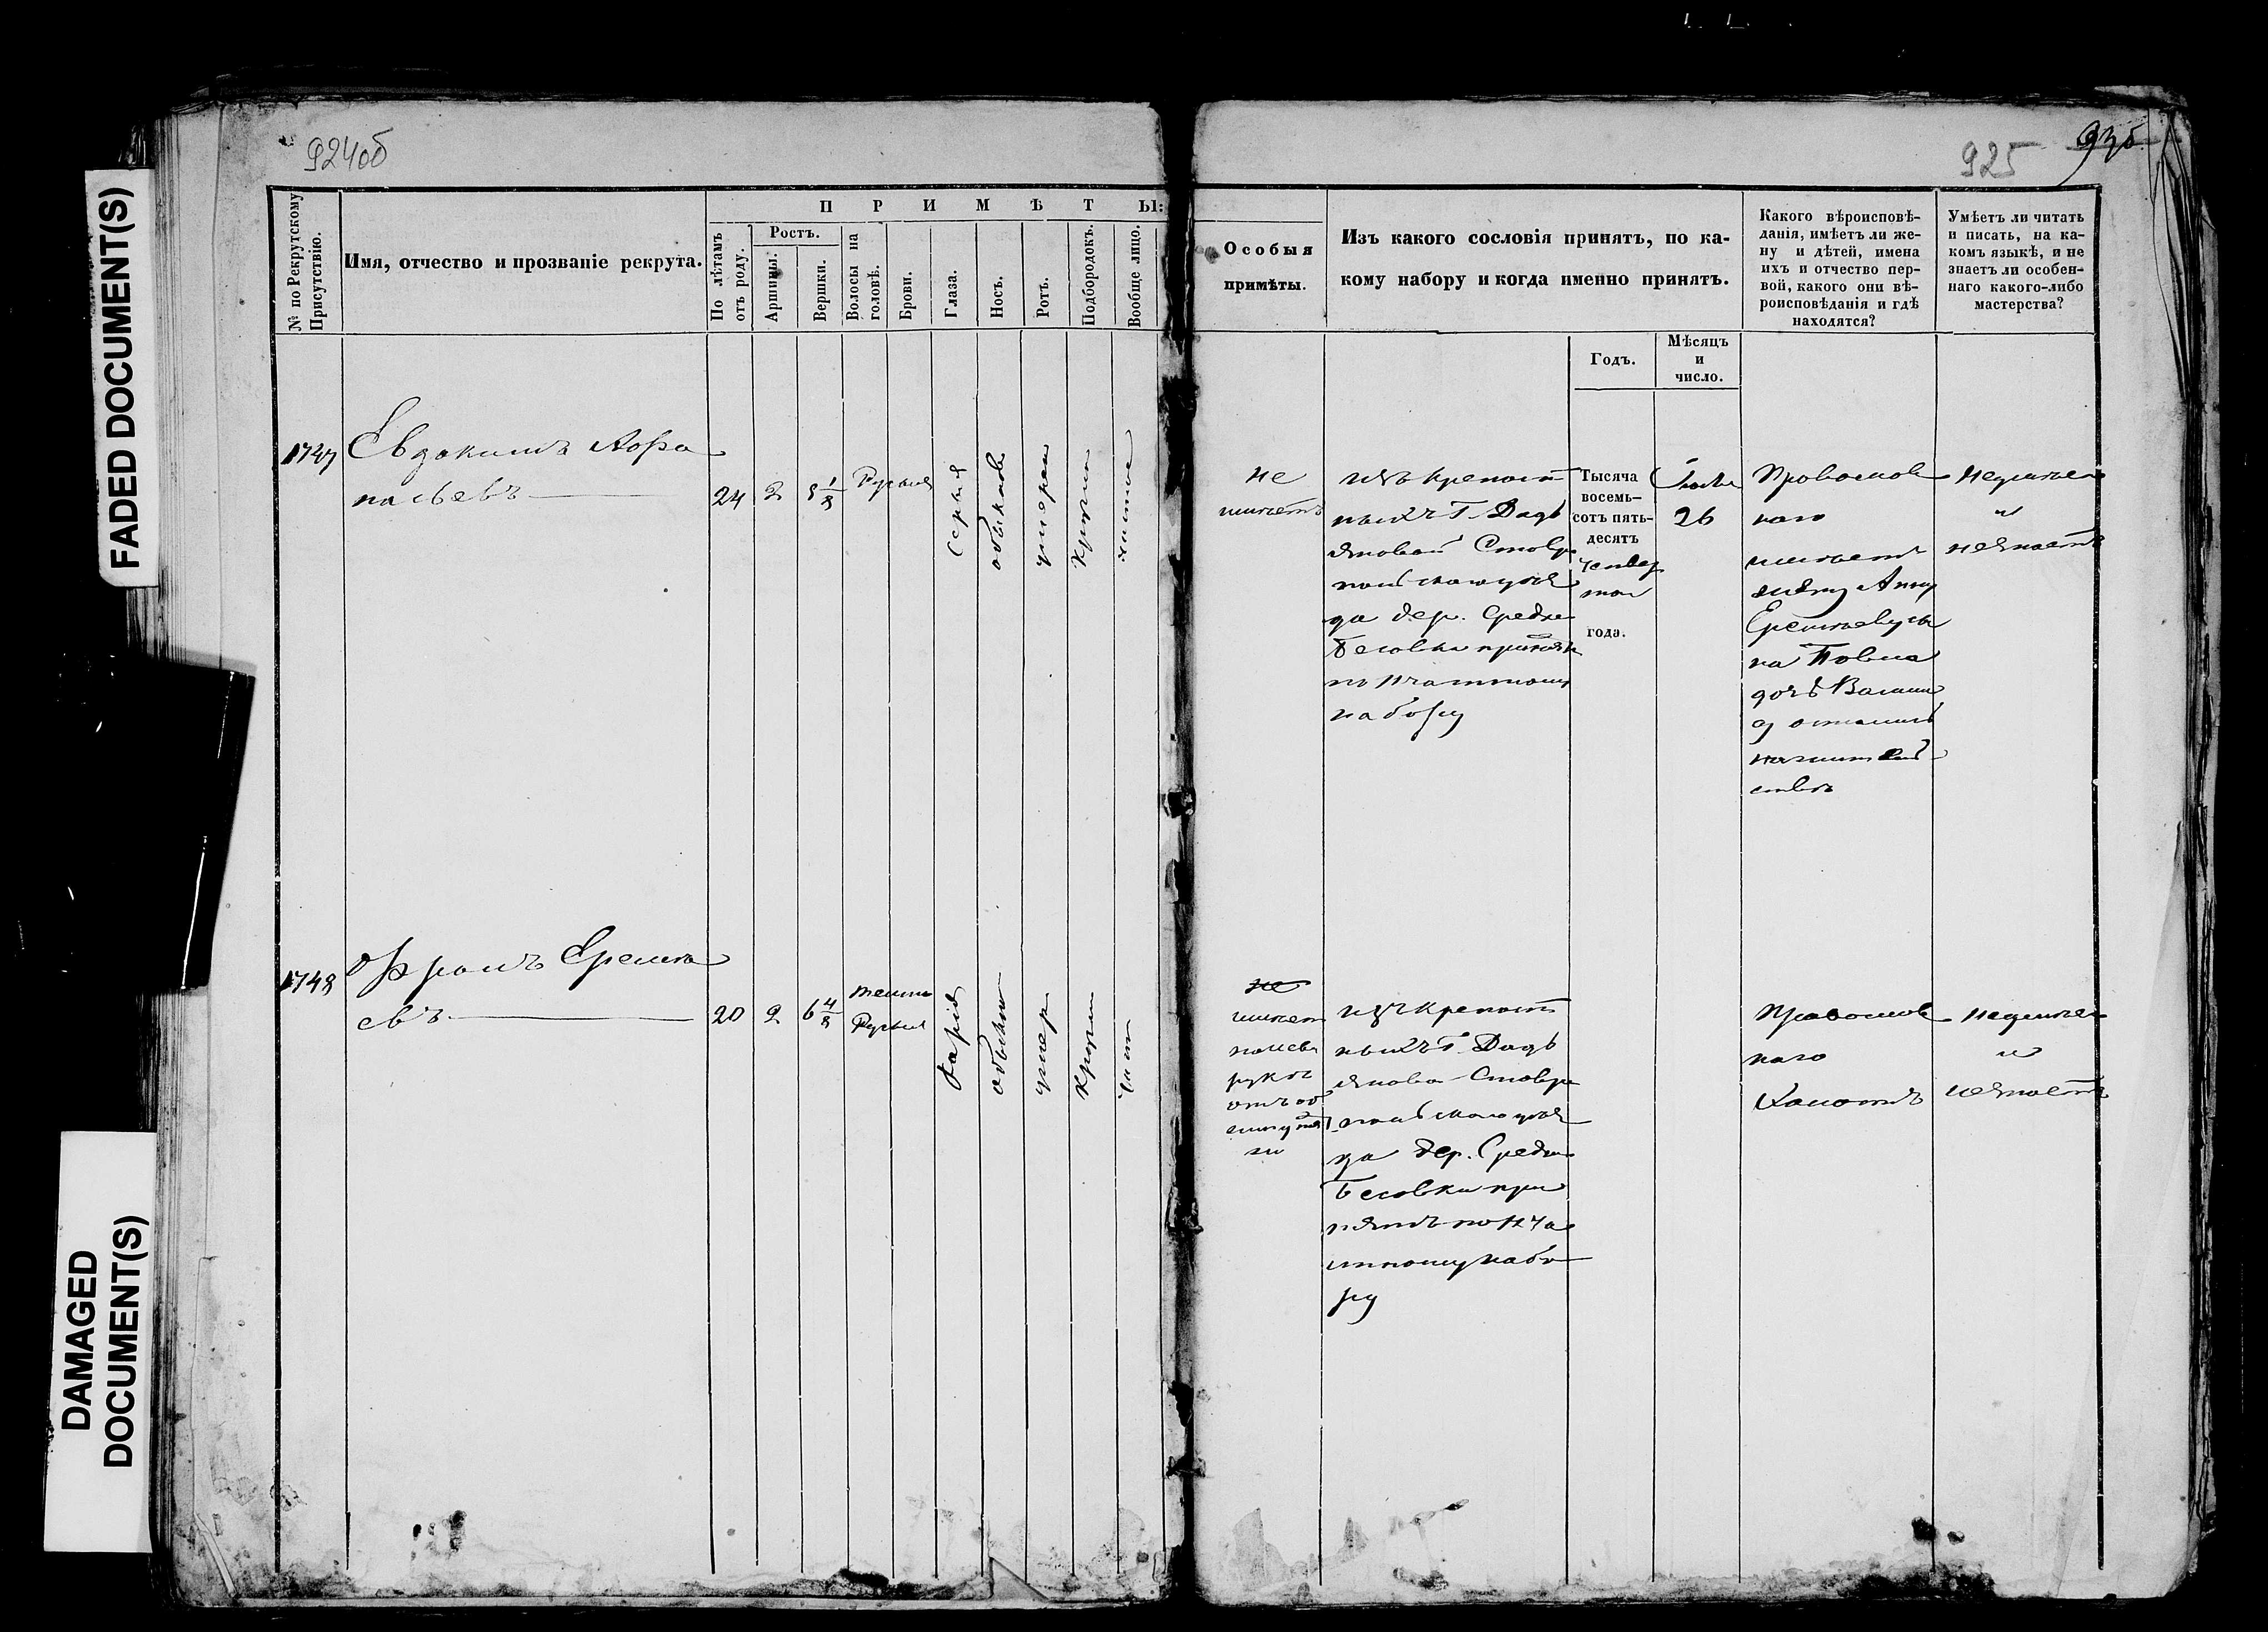 924об
925
935
FADED DOCUMENT(S)
DAMAGED
DOCUMENT(S)
№ по Рекрутскому
Присутствію.
Имя, отчество и прозваніе рекрута.
ПРИМѢТЫ:
По лѣтамъ
отъ роду.
Ростъ.
Аршины.
Вершки.
Волосы на
головѣ.
Брови.
Глаза.
Носъ.
Ротъ.
Подбородокъ.
Вообще лицо.
Особыя
примѣты.
Изъ какого сословія принятъ, по ка-
кому набору и когда именно принятъ.
Годъ.
Мѣсяцъ
и
число.
Какого вѣроисповѣ-
данія, имѣетъ ли же-
ну и дѣтей, имена
ихъ и отчество пер-
вой, какого они вѣ-
роисповѣданія и гдѣ
находятся?
Умѣетъ ли читать
и писать, на ка-
комъ языкѣ, и не
знаетъ ли особен-
наго какого-либо
мастерства?
1747
Евдокимъ Афа
насьевъ
24
2
5 1/8
Русыя
Серыя
обыкнов
умерен
Кругл
чистое
не
имѣетъ
изъ крепост
ныхъ Г. Дадь
яновой Ставро
польскаго уѣз
да дер. Средне
Бесовки принятъ
по
набору
Тысяча
восемь-
сотъ пять-
десятъ
четвер
таго
года.
26
Православ
наго
имѣетъ
жену Анну
Еремѣеву сы
на
дочь
остались
на жительс
ствѣ
Неумѣетъ
и
незнаетъ
1748
Ефромъ Еремѣ
евъ
20
2
6 4/8
темно
Русыя
Каріе
обыкно
умер
Кругл
чист
не
имѣет
на лев
руке
изъ крепост
ныхъ Г. Дадь
янова Ставро
польскаго уѣз
да дер. Средне
Бесовки при
нятъ по
набо
ру
Православ
наго
Холостъ
Неумѣет
и
незнаетъ